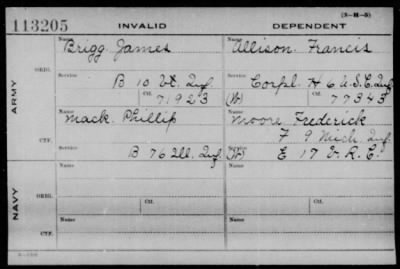 (3-H-5)
113205 INVALID DEPENDENT
Name Name
Brigg James Allison Francis
ORIG.
Service Service
B 10 Vt. Inf. Corpl. H 6 U.S.C. Inf.
Ctf. Ctf.
71923 (W) 77343
ARMY
Name Name
Mack Phillip Moore Frederick
CTF.
F 9 Mich. Inf.
Service
B 76 Ill. Inf. E 17 V. R. C.
Name Name
ORIG.
Ctf. Ctf.
NAVY
Name Name
CTF.